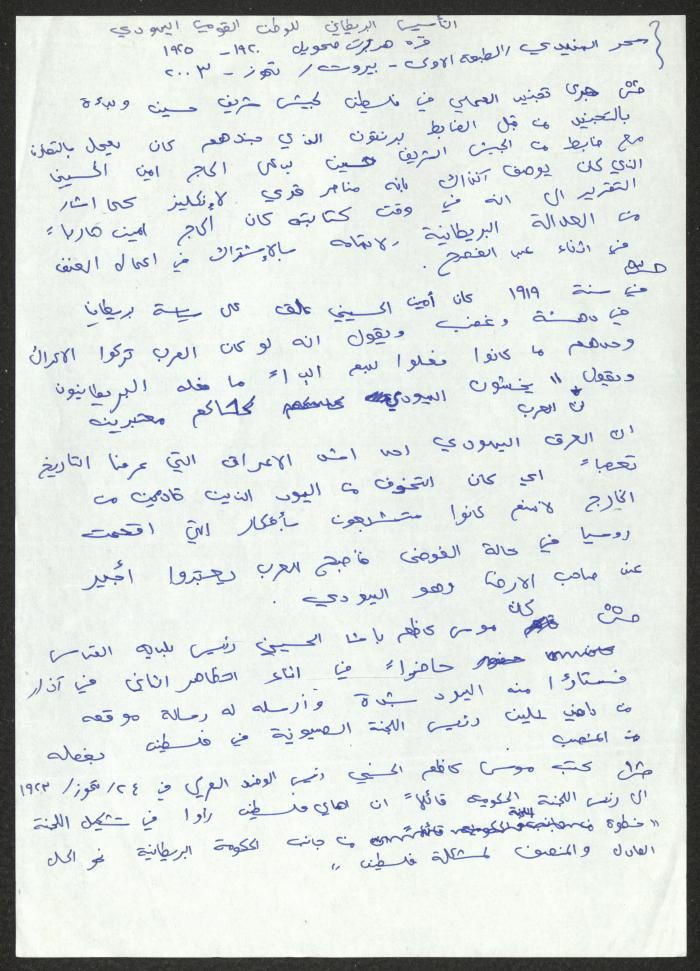 التأسيس البريطاني للوطن القومي اليهودي
فترة هربرت صموئيل ١٩٢٠ - ١٩٢٥
سحر الهنيدي / الطبعة الاولى - بيروت / تموز - ٢٠٠٣
جرى تجنيد العملي في فلسطين لجيش شريف حسين وبداءة
بالتجنيد من قبل الضابط برنتون الذي جندهم كان يعمل بالتعاون
مع ضابط من الجيش الشريف حسين يدعى الحاج امين الحسيني
الذي كان يوصف آنذاك بانه مناصر قوي لإنكليز كما اشار
التقرير الى انه في وقت كتابته كان الحاج امين هارباً
من العدالة البريطانية لاتهامه بالإشتراك في اعمال العنف
في اثناء عيد الفصح.
في سنة ١٩١٩ كان أمين الحسيني علق على سياسة بريطانيا
في دهشة وغضب ويقول انه لو كان العرب تركوا الاتراك
وحدهم ما كانوا فعلوا لهم ابداً ما فعله البريطانيون
ويقول " يخشون اليهودي كحاكم معتبرين
ان العرب
ان العرق اليهودي احد اشد الاعراق التي عرفنا التاريخ
تعصباً اي كان التخوف من اليهود الذين قادمين من
الخارج لانهم كانوا متشبعون بأفكار التي اقحمت
روسيا في حالة الفوضى فأصبح العرب يعتبروا أجير
عند صاحب الارض وهو اليهودي.
كان موسى كاظم باشا الحسيني رئيس بلدية القدس
حاضراً في اثناء التظاهر الثاني في آذار
فستاؤا منه اليهود بشدة وأرسله له رسالة موقعه
من رئيس اللجنة الصهيونية في فلسطين بفصله
من المنصب
كتب موسى كاظم الحسيني رئيس الوفد العربي في ٢٤/ تموز/ ١٩٢٣
الى رئيس اللجنة الحكومية قائلاً ان اهالي فلسطين رأوا في تشكيل اللجنة
" خطوة من جانب الحكومة البريطانية نحو الحل
العادل والمنصف لمشكلة فلسطين "